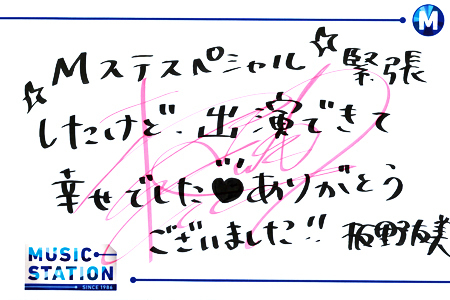 M
☆Mステスペシャル☆緊張
したけど、出演できて
幸せでした♥ありがとう
ございました!! 板野友美
MUSIC
STATION
SINCE 1986